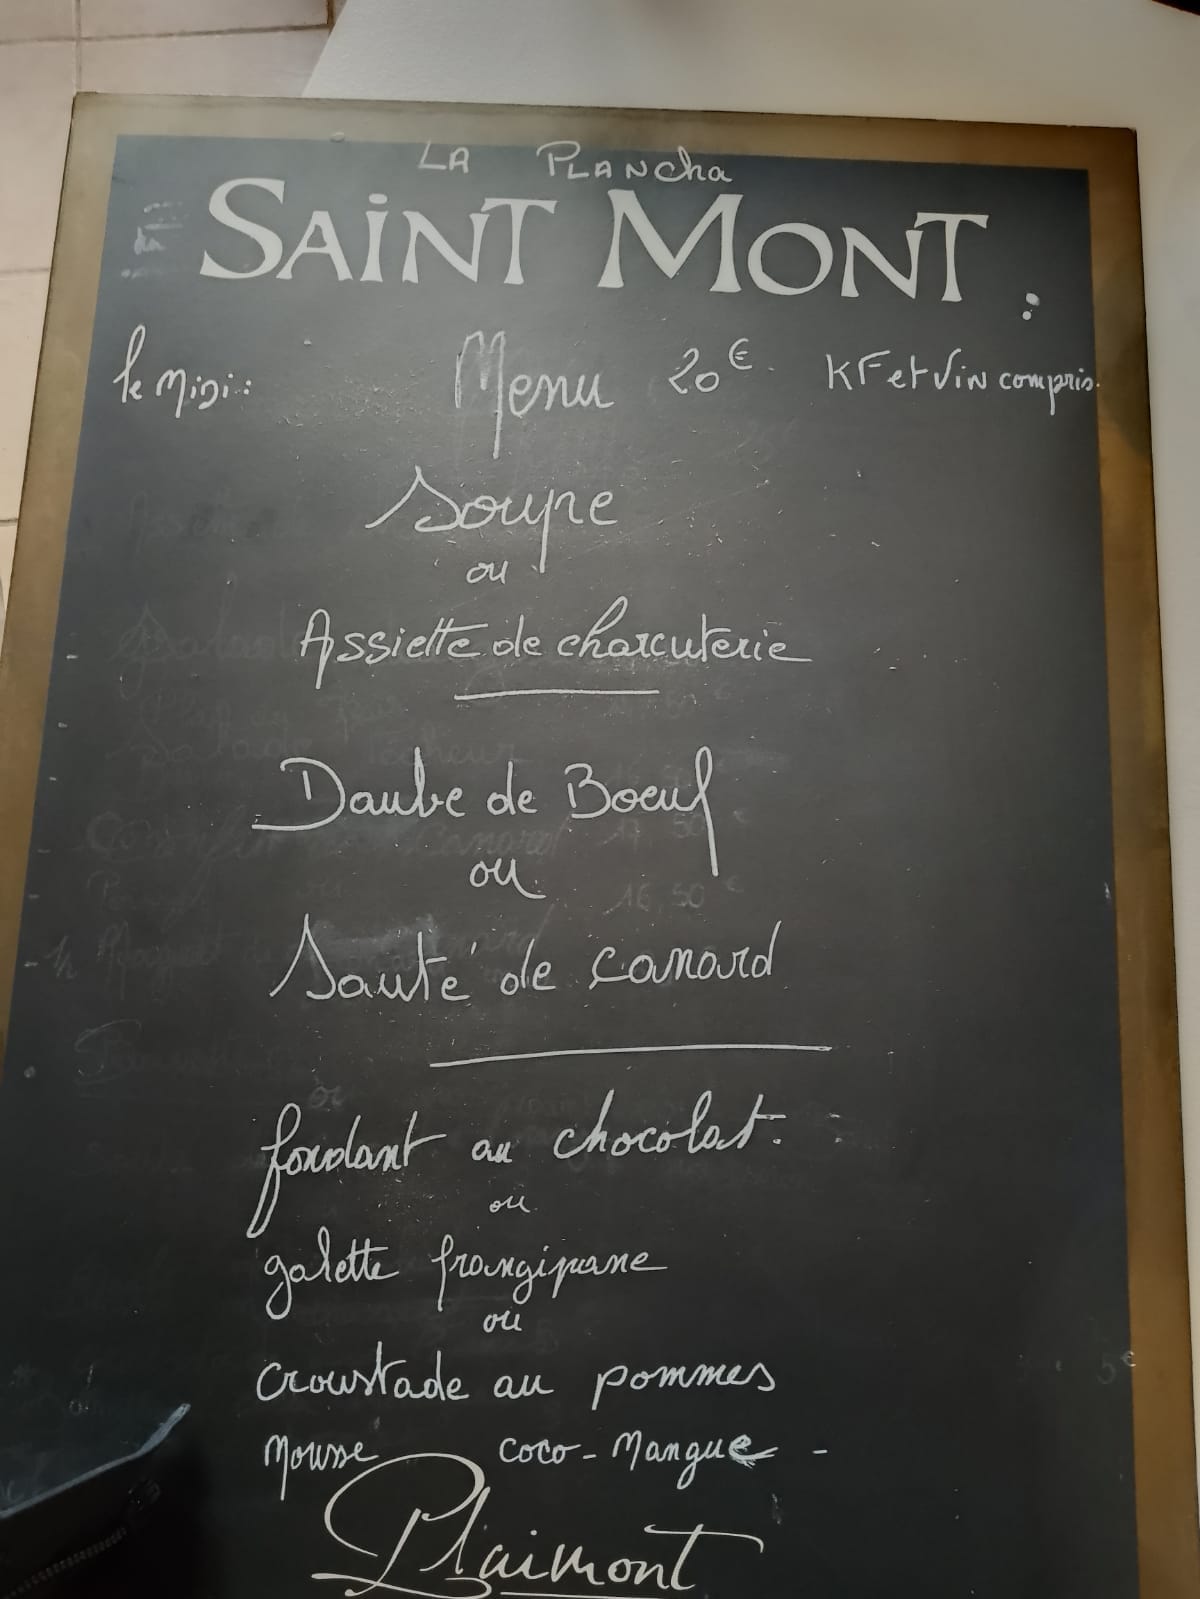 LA PLANcha
SAINT MONT
le Midi : Menu 20€. KF et Vin compris.
Soupe
ou
Assiette de charcuterie
Daube de Boeuf
ou
Sauté de canard
fondant au chocolat.
ou
galette frangipane
ou
croustade au pommes
Mousse coco - Mangue -
Plaimont